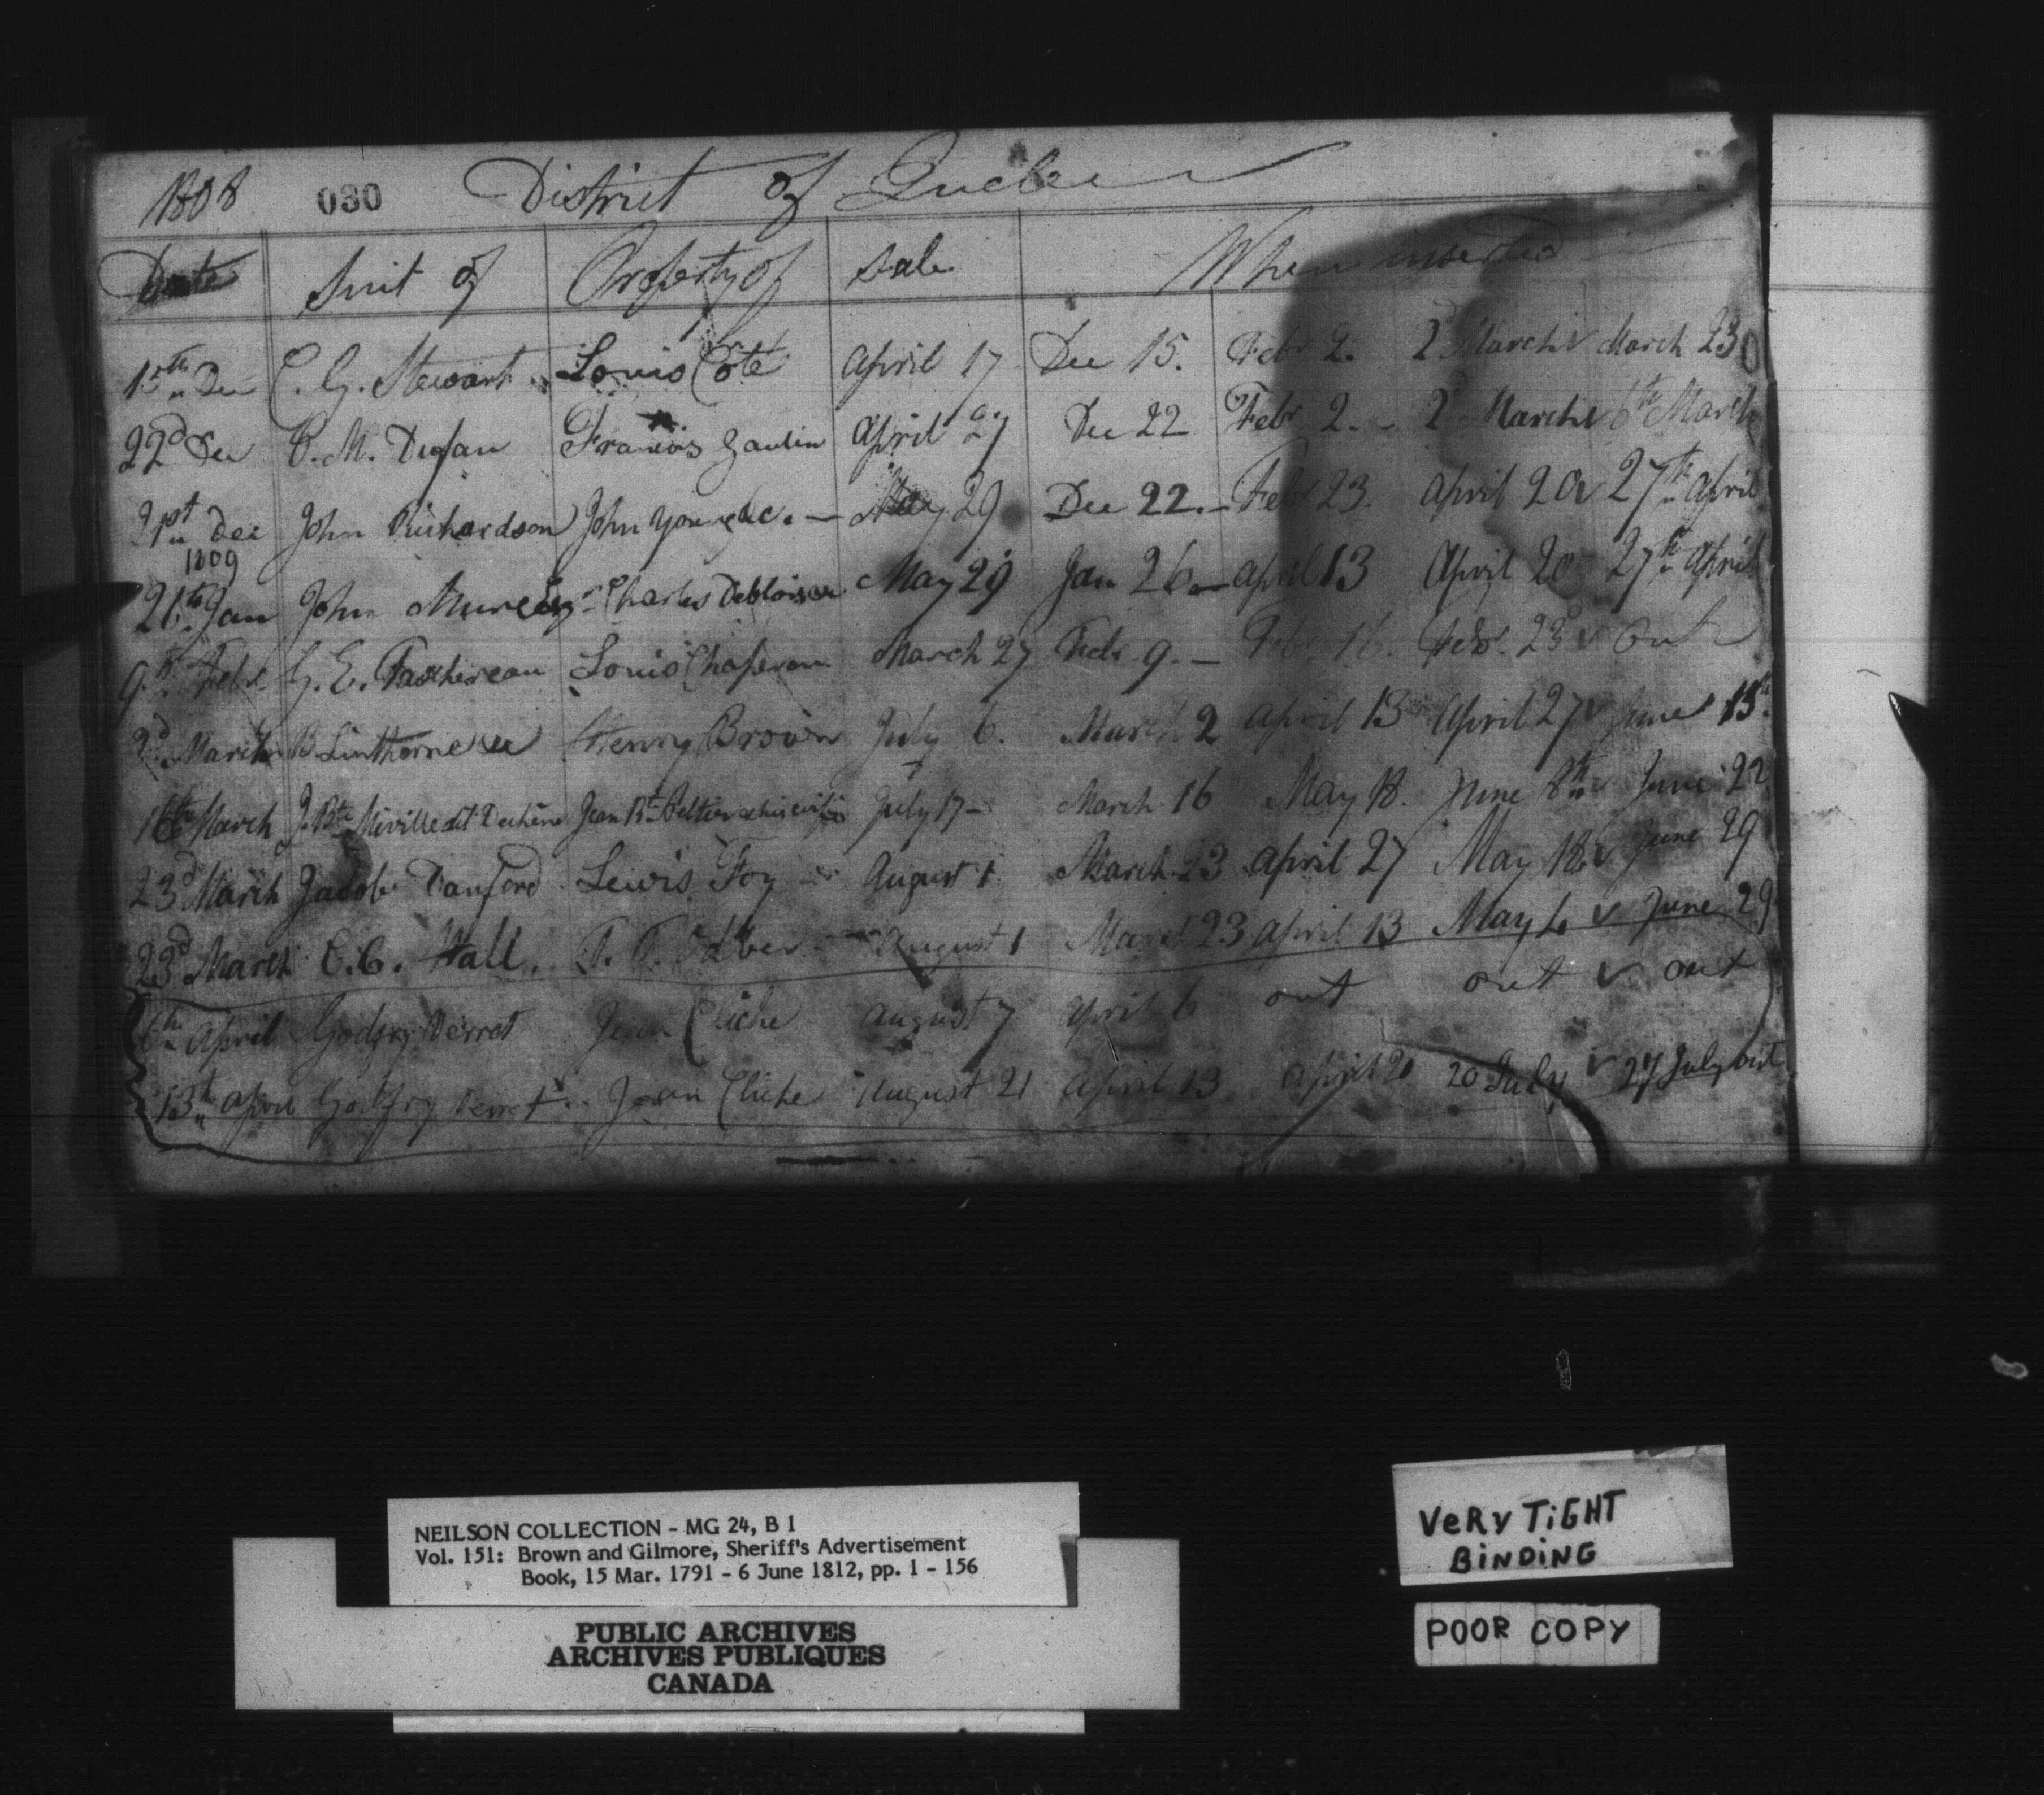 1808 030 District of Quebec
Date Suit of Property of Sale When inserted
15th Dec C. G. Stewart Louis Coté April 17 Dec 15. Febr 2. 2d March v March 23
22d Dec C. M. Dufau Francois Gaulin April 27 Dec 22 Febr 2. - 2d March v 6th March
Dec John Richardson John Young &c. — May 29 Dec 22. - Febr 23. April 20 v 27th April
1809
26th Jan John Mure Esqr Charles Deblois May 29 Jan 26 — April 13 April 20 27th April
9th Febr G. E. Taschereau Louis Chaperon March 27 Febr 9. — Febr 16. Febr. 23d v Out
2d March B. Linthorne Henry Brown July 6. March 2 April 13 April 27 v June 15th
16th March J. Bte Miville dit Dechêne Jean Bt Peltier & his wife July 17 - March 16 May 18. June 8th v June 22
23d March Jacob Danford Lewis Foy August 1 March 23 April 27 May 18 v June 29
23d March C. C. Hall. August 1 March 23 April 13 May 4 v June 29
6th April Godfry Derret Jean Cliche August 7 April 6 out out v out
13th April Godfry Derret Jean Cliche August 21 April 13 April 20 July v 27 July out
NEILSON COLLECTION - MG 24, B 1
Vol. 151: Brown and Gilmore, Sheriff's Advertisement
Book, 15 Mar. 1791 - 6 June 1812, pp. 1 - 156
PUBLIC ARCHIVES
ARCHIVES PUBLIQUES
CANADA
VERY TIGHT
BINDING
POOR COPY